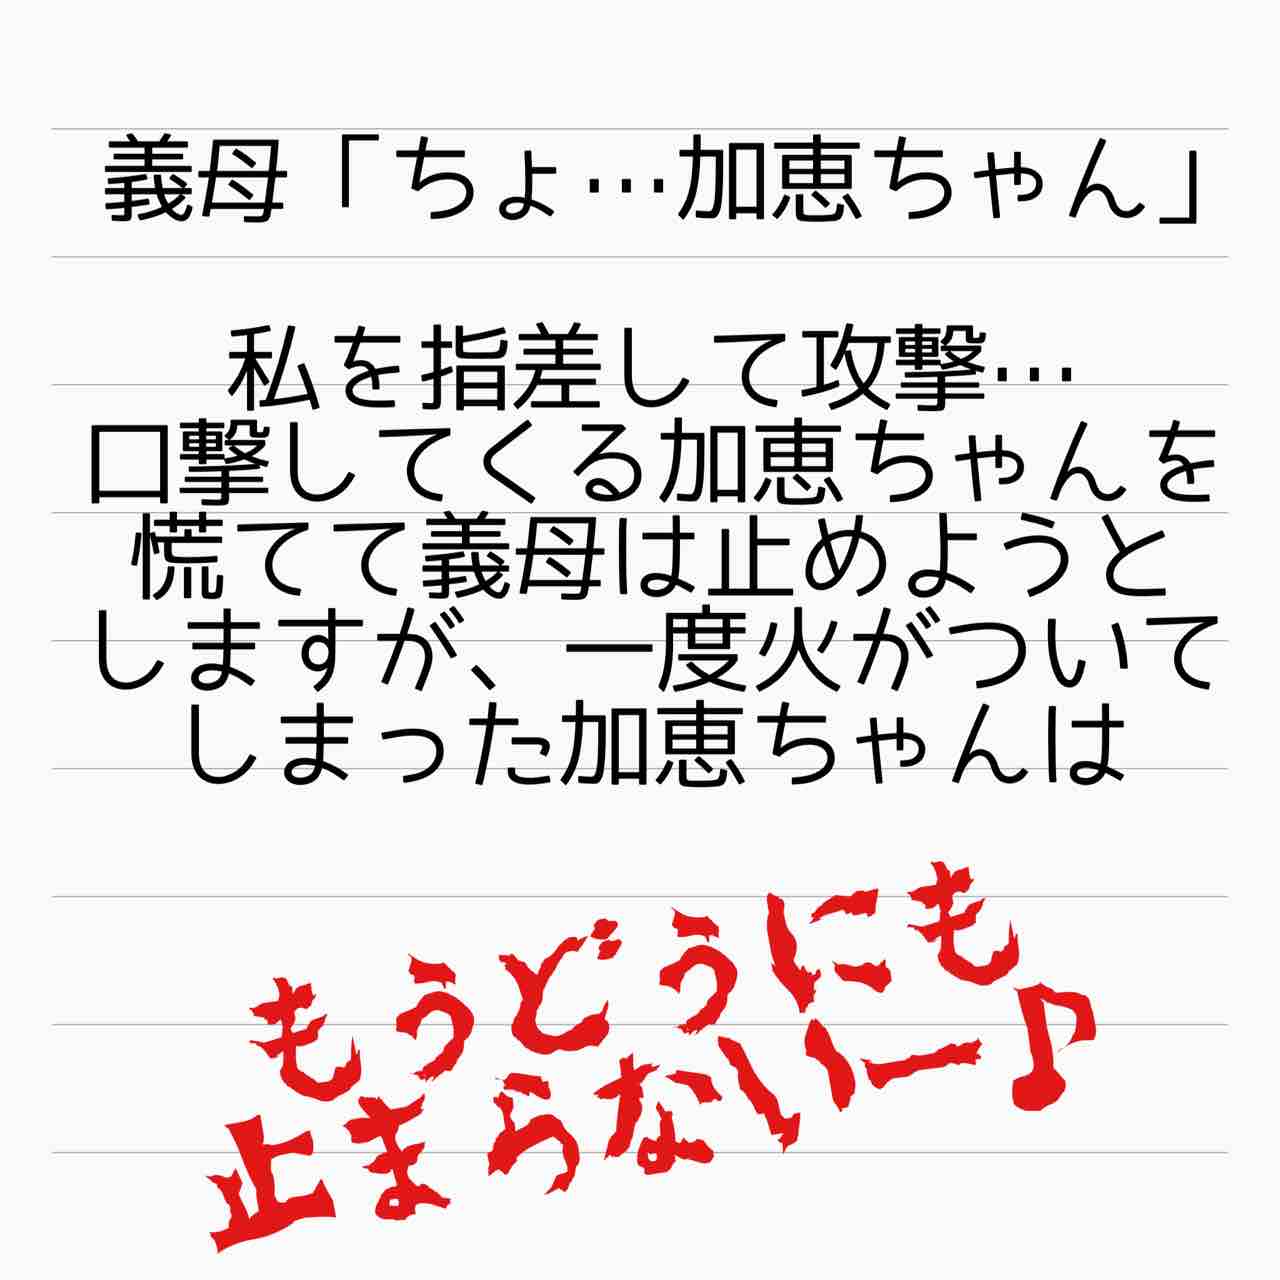 義母「ちょ…加恵ちゃん」
私を指差して攻撃…
口撃してくる加恵ちゃんを
慌てて義母は止めようと
しますが、一度火がついて
しまった加恵ちゃんは
もうどうにも
止まらないー♪